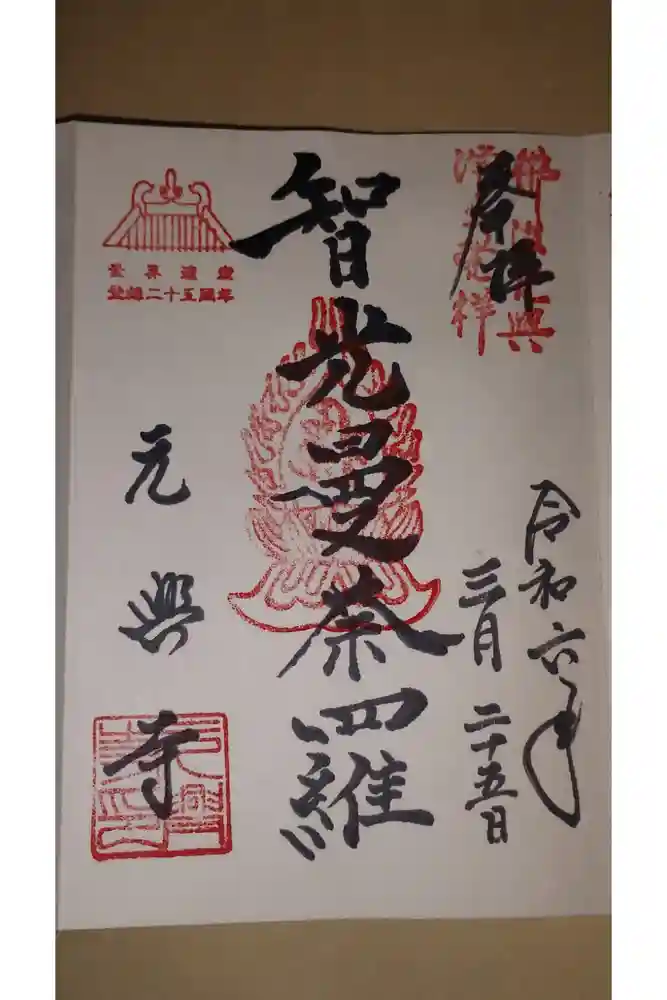 佛法元興
浄土発祥
奉拝
令和六年
三月二十五日
智光曼荼羅
世界遺産
登録二十五周年
元興寺
元興
寺印